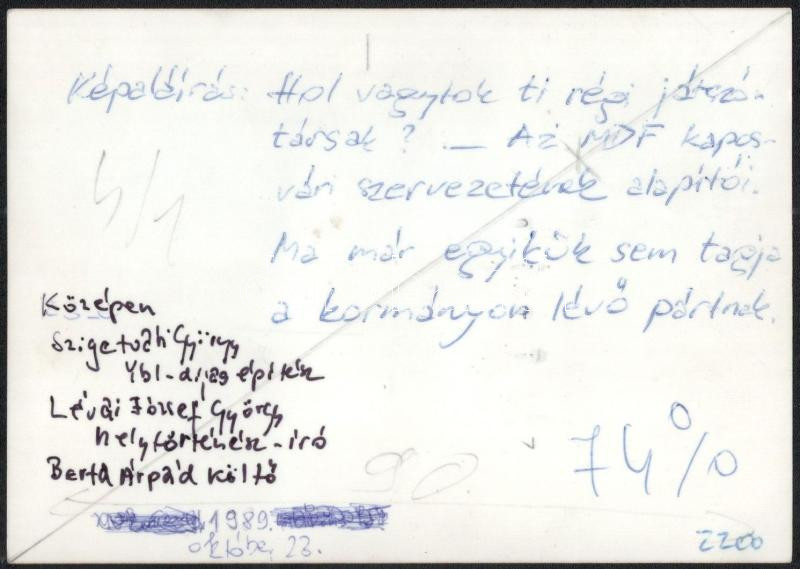 Képaláírás: Hol vagytok ti régi játszó-
társak? — Az MDF kapos-
vári szervezetének alapítói.
Ma már egyikük sem tagja
a kormányon lévő pártnak.
4/1
Középen
Szigetvári György
Ybl-díjas építész
Lévai József György
helytörténész-író
Berta Árpád költő
90.
74%
1989.
október 23.
2200